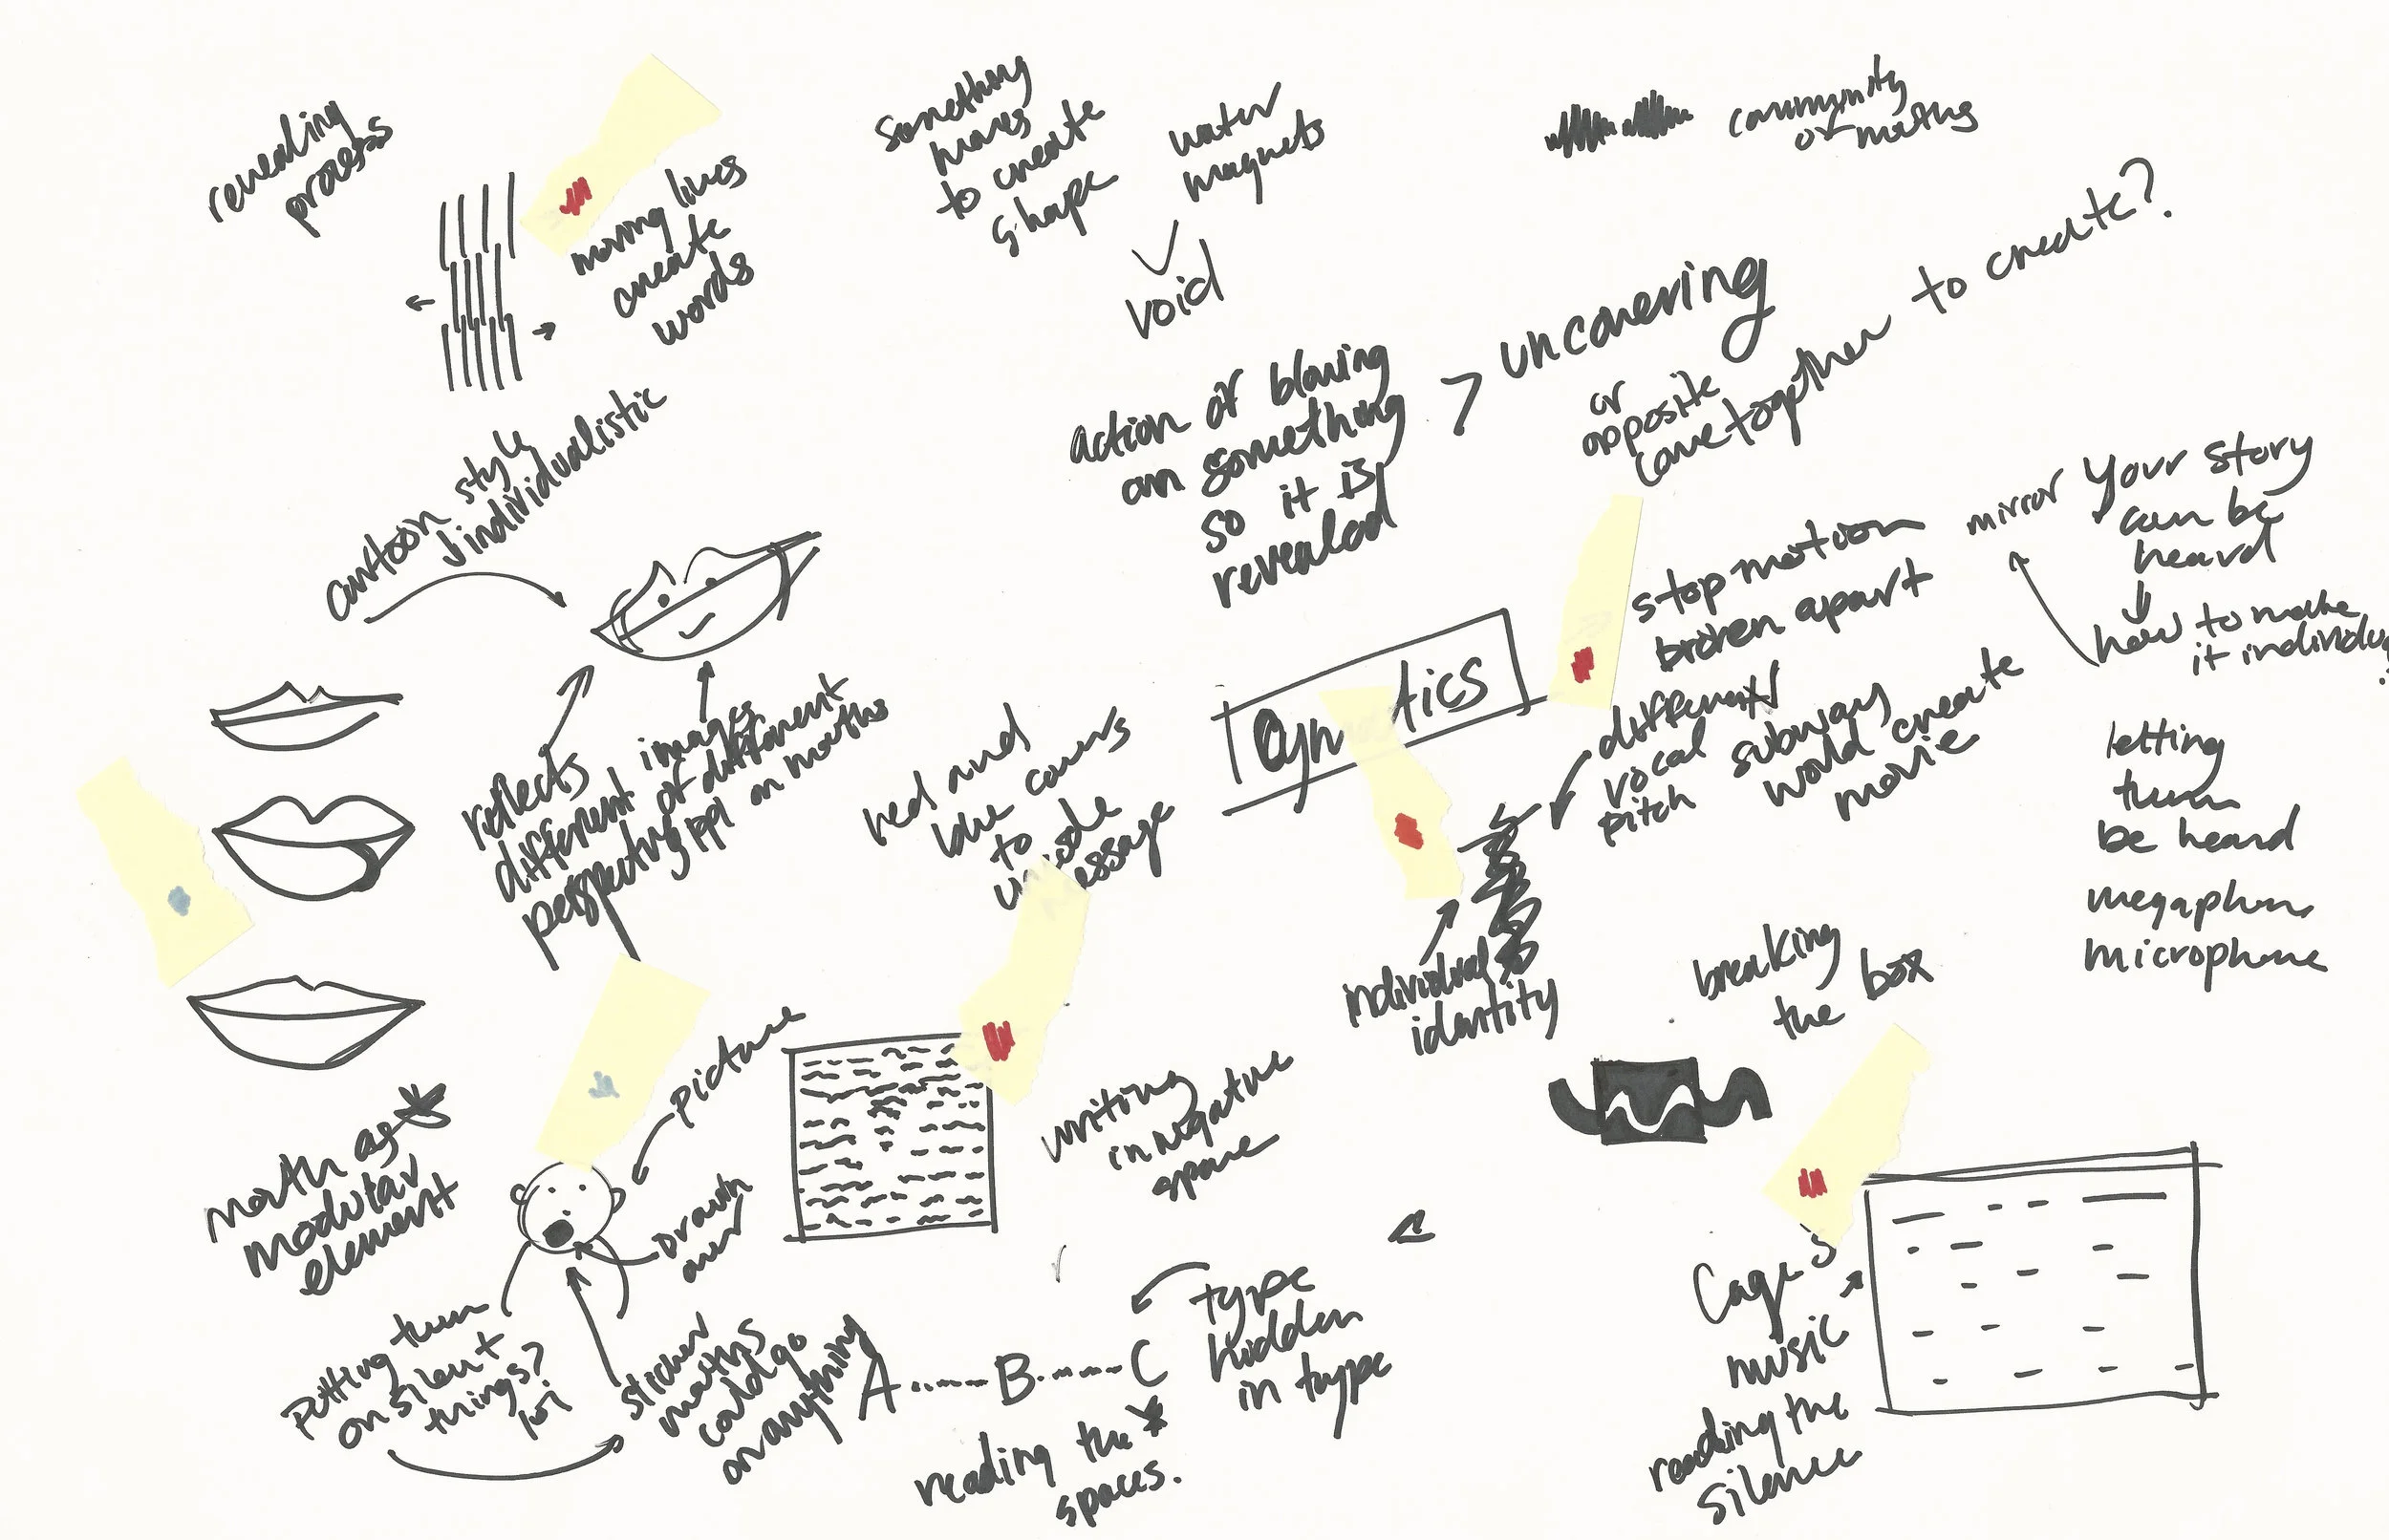 revealing
process
moving lines
create
words
something
moves
to create
shape
water
magnets
void
community
of mouths
action of blowing
on something
so it is
revealed
> uncovering
or
opposite
come together to create?
cartoon style
individualistic
mirror
Your story
can be
heard
how to make
it individu
stop motion
broken apart
different
vocal
pitch
subway
would create
movie
tics
reflects
different images
of different
ppl on mouths
red and
to
message
letting
them
be heard
megaphone
microphone
individual
identity
breaking
the box
picture
mouth as
modular
element
writing
in negative
space
Drawn
over
putting them
on silent
things?
sticker
mouths
could go
on anything
A B C
type
hidden
in type
reading the
spaces.
Cage's
music
reading the
silence